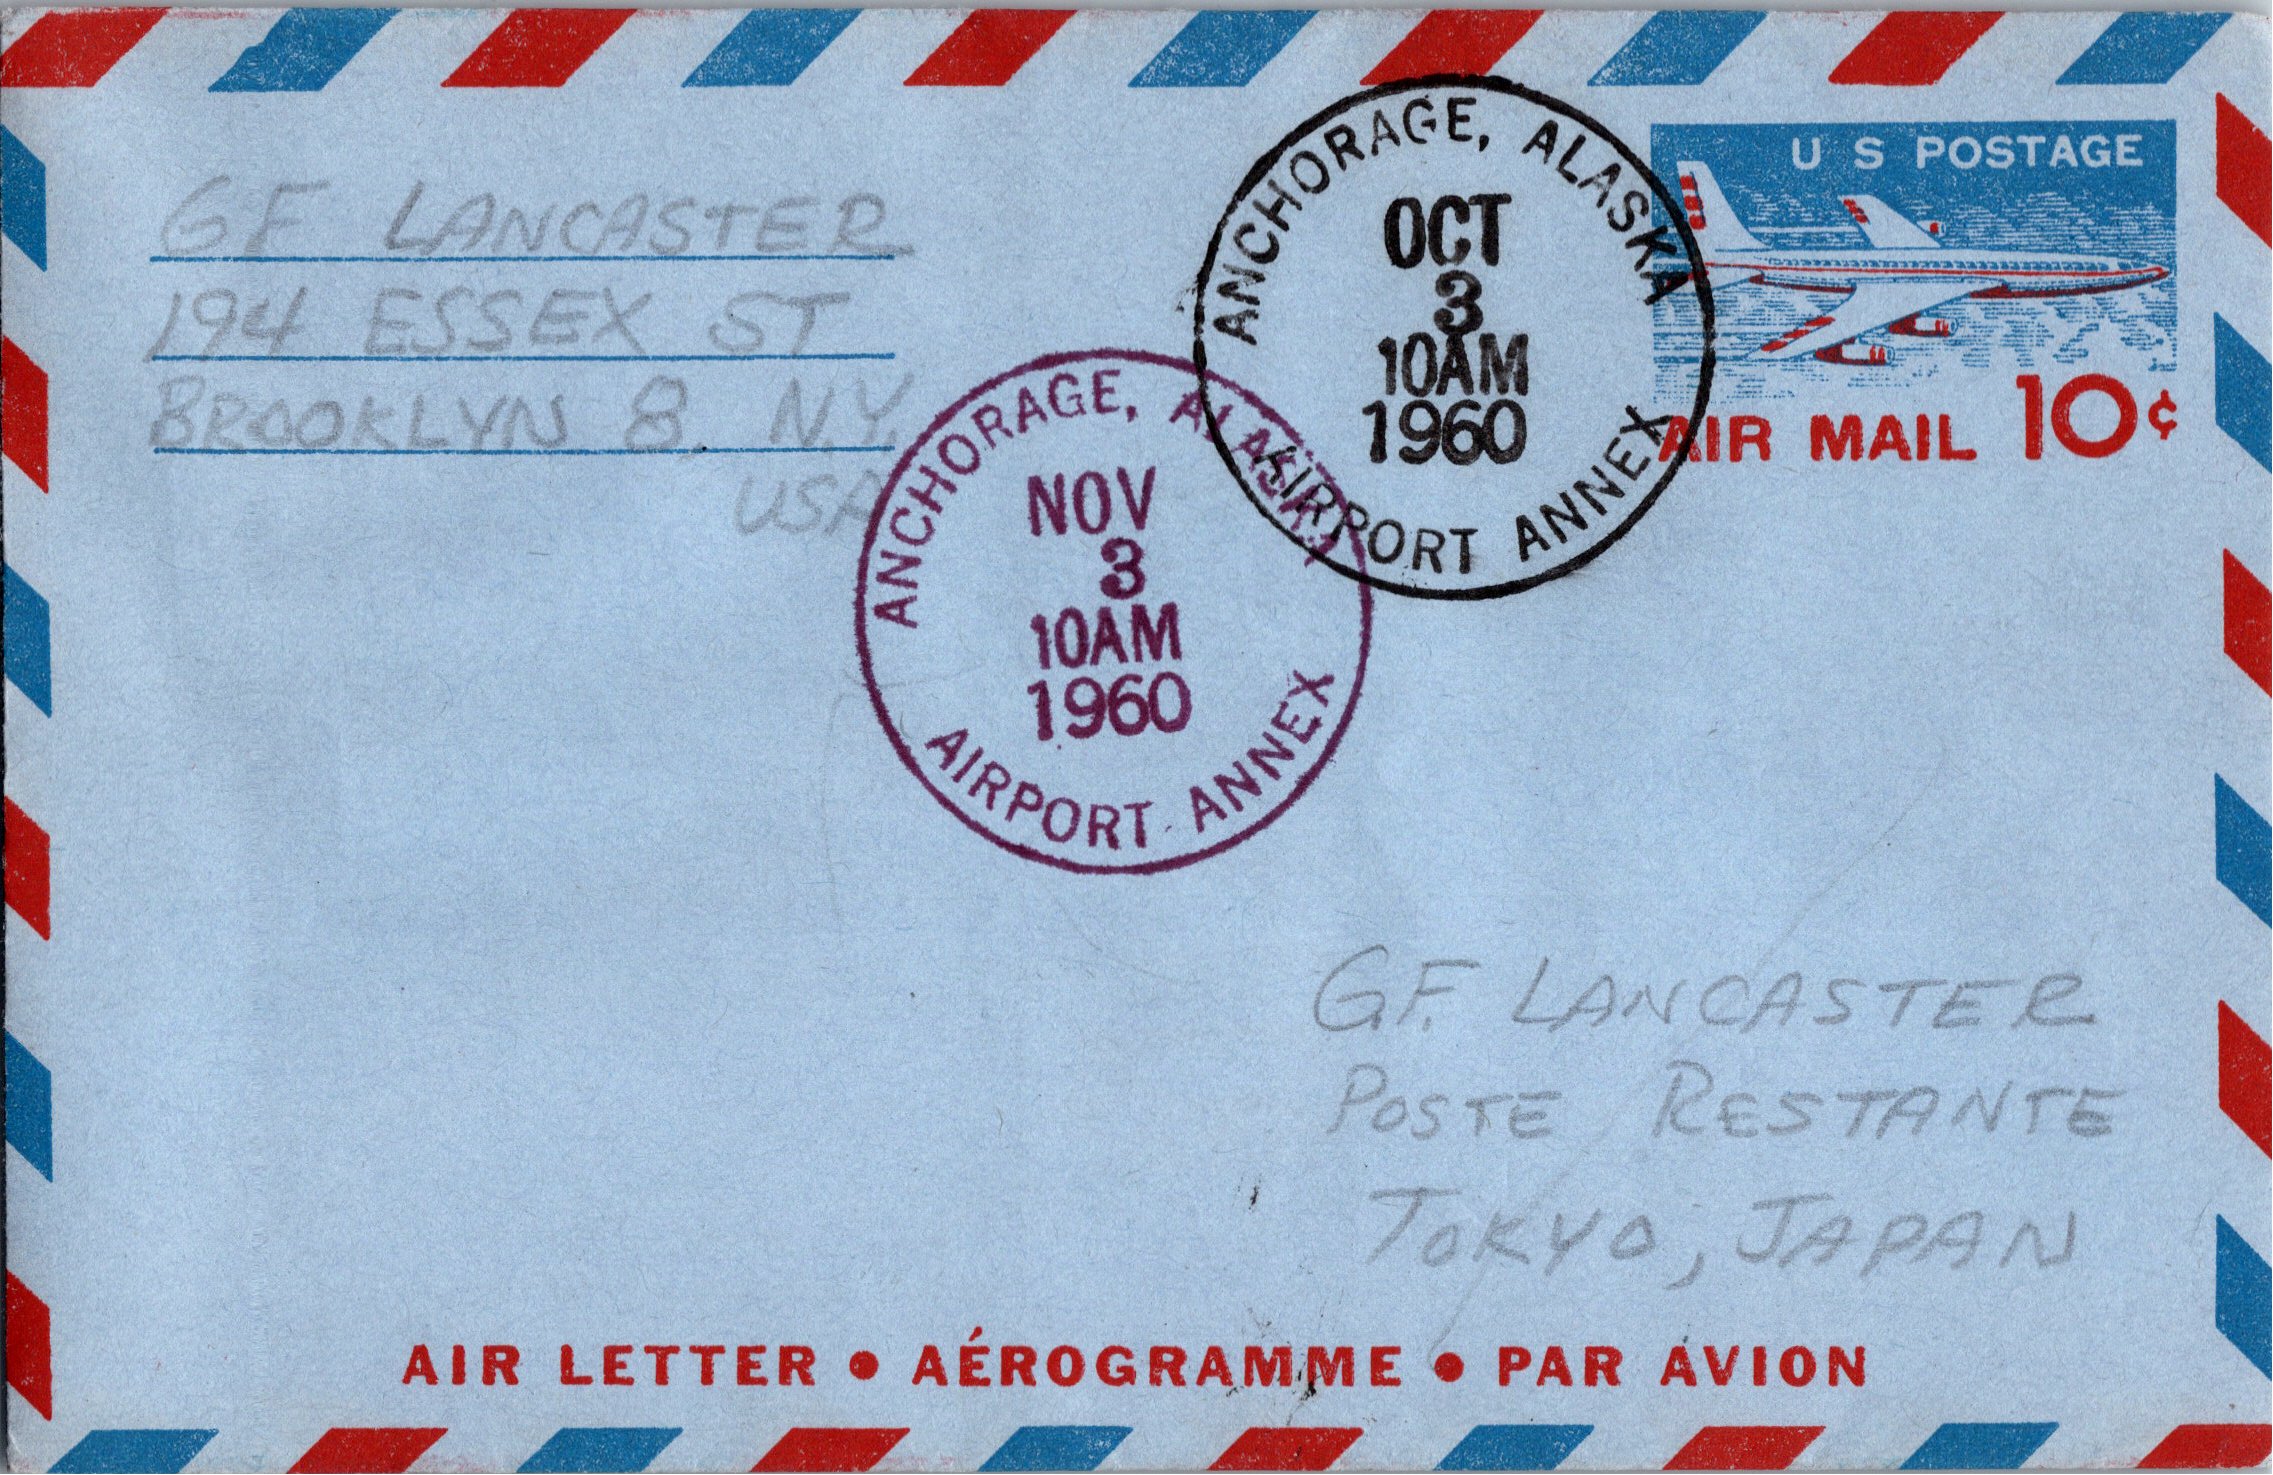 GF LANCASTER
194 ESSEX ST
BROOKLYN 8. N.Y.
USA
ANCHORAGE, ALASKA
OCT
3
10AM
1960
AIRPORT ANNEX
U S POSTAGE
AIR MAIL 10¢
ANCHORAGE, ALASKA
NOV
3
10AM
1960
AIRPORT ANNEX
G.F. LANCASTER
POSTE RESTANTE
TOKYO, JAPAN
AIR LETTER • AÉROGRAMME • PAR AVION